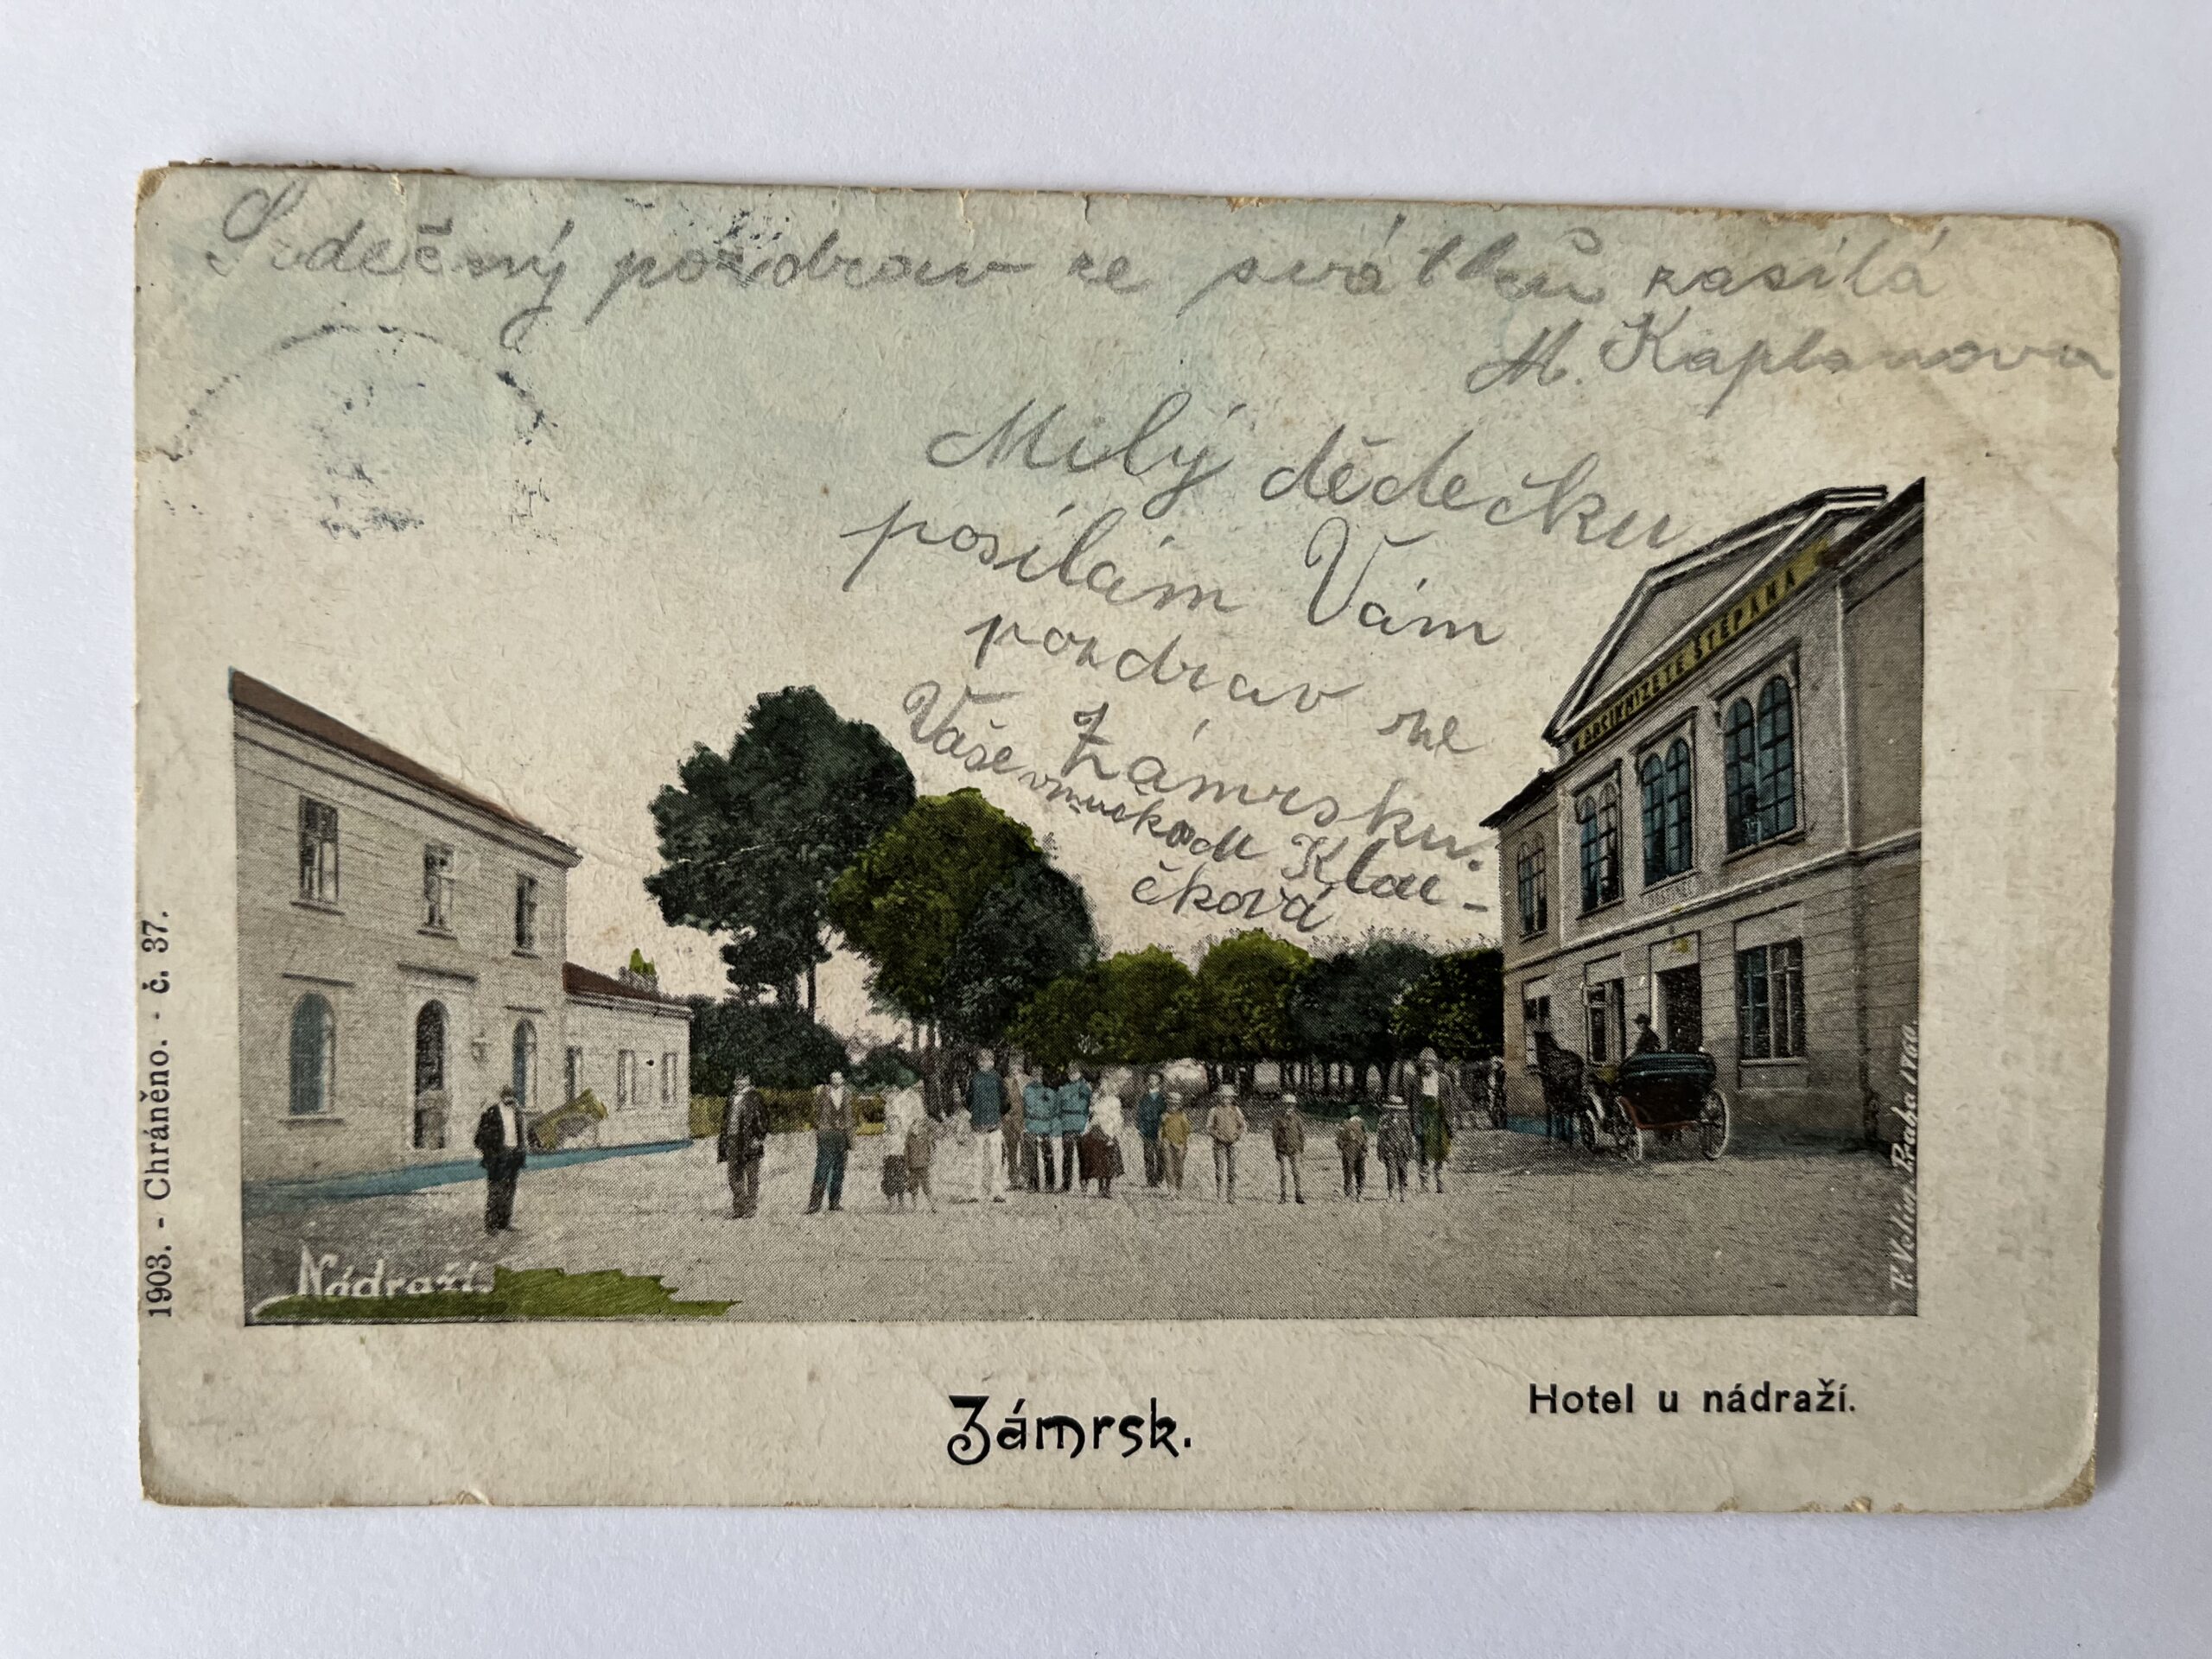 Srdečný pozdrav ze svátků zasílá
M. Kaplanova
Milý dědečku
posílám Vám
pozdrav ze
Zámrsku.
Vaše vnučka Klou-
čková
ARCIKNÍŽETE ŠTĚPÁNA
HOSTINEC
1903. - Chráněno. - č. 37.
Nádraží.
Praha 1760.
Zámrsk.
Hotel u nádraží.